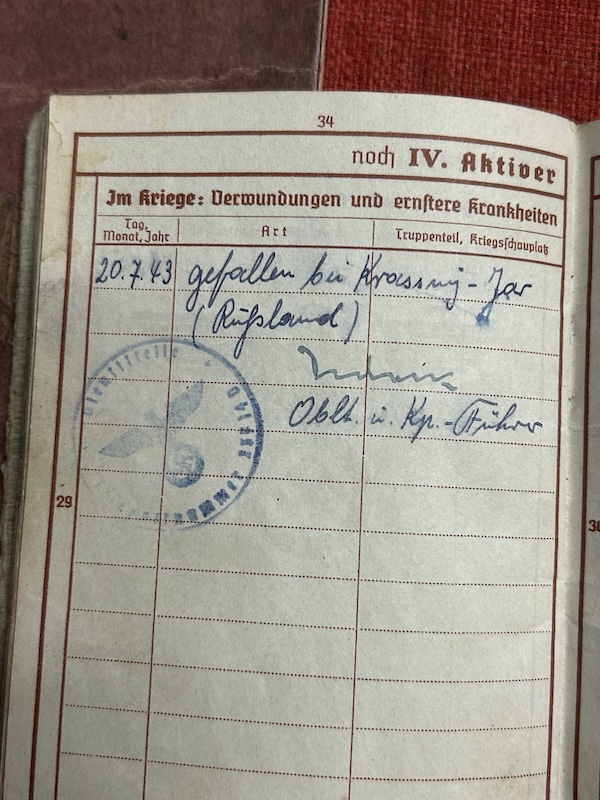 34
noch IV. Aktiver
Im Kriege: Verwundungen und ernstere Krankheiten
Tag, Monat, Jahr
Art
Truppenteil, Kriegsschauplatz
20.7.43 gefallen bei Krassnij-Jar
(Rußland)
Oblt. u. Kp.-Führer
Dienststelle
29
30